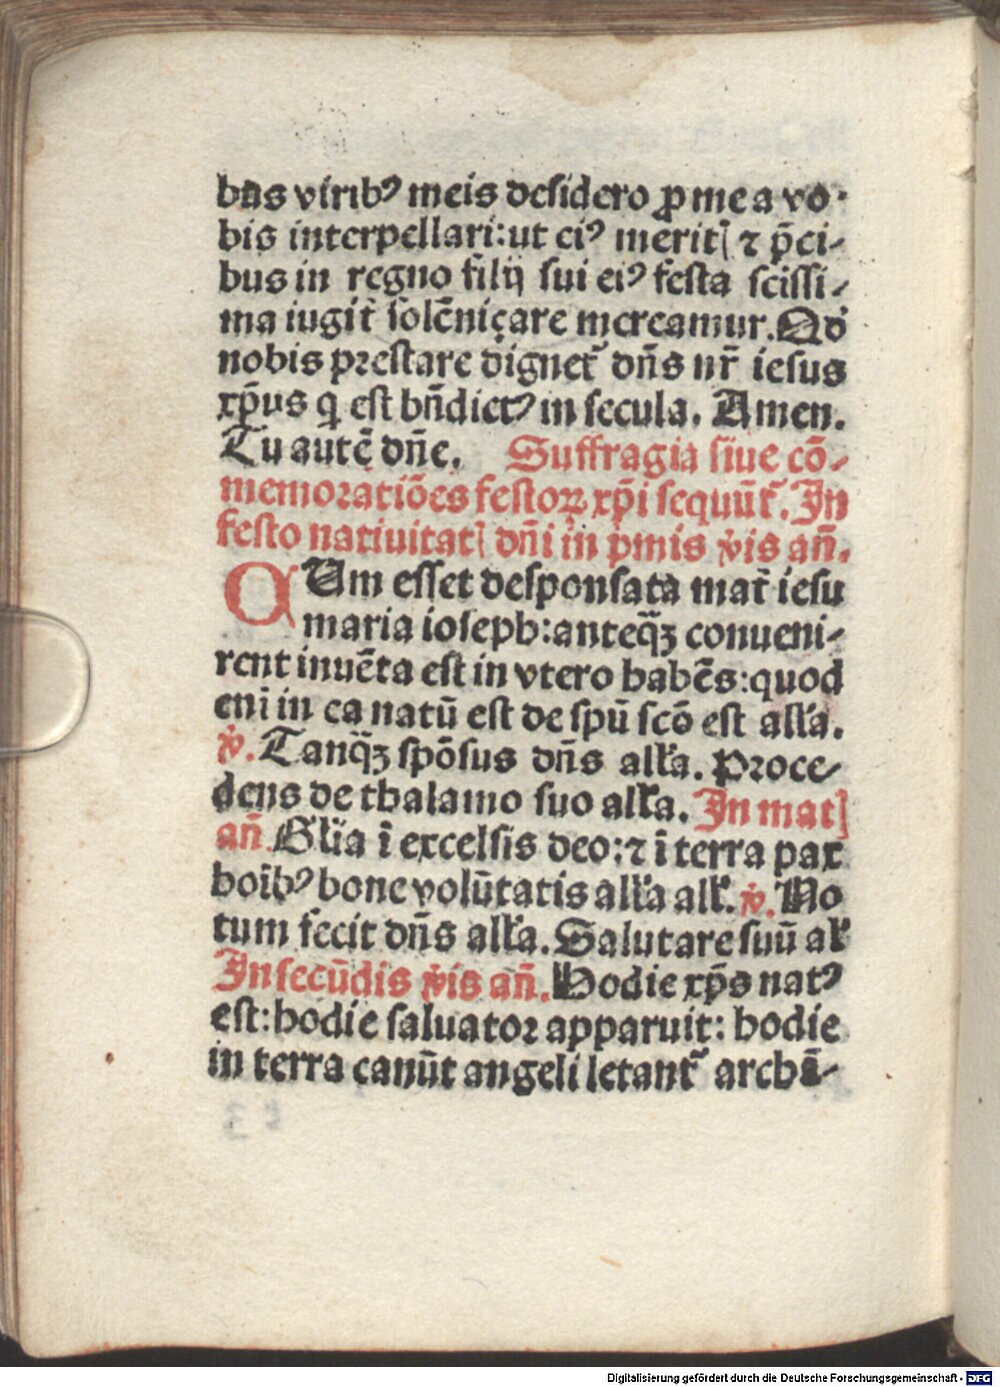 bus viribꝰ meis desidero ꝓ me a vo-
bis interpellari: ut eiꝰ meritꝭ ⁊ p̄ci-
bus in regno filij sui eiꝰ festa scissi-
ma iugit᷑ solēnizare mereamur. Qḋ
nobis prestare dignet᷑ dn̄s nr̄ iesus
xp̄us q est bn̄dictꝰ in secula. Amen.
Tu autē dn̄e. Suffragia siue cō-
memoratiōes festoꝝ xp̄i sequūt᷑. In
festo natiuitatꝭ dn̄i in pmis v̓is an̄.
CUm esset desponsata mat᷑ iesu
maria ioseph: anteq̄ꝫ conueni-
rent inuēta est in vtero habēs: quod
eni in ea natū est de spū scō est all'a.
℣. Tanq̄ꝫ spōsus dn̄s all'a. Proce-
dens de thalamo suo all'a. In matꝭ
an̄. Gl'ia ī excelsis deo: ⁊ ī terra pax
hoībꝰ bone volūtatis all'a all'. ℣. No
tum fecit dn̄s all'a. Salutare suū al'
In secūdis v̓is an̄. Hodie xp̄s natꝰ
est: hodie saluator apparuit: hodie
in terra canūt angeli letant᷑ archā-
Digitalisierung gefördert durch die Deutsche Forschungsgemeinschaft - DFG